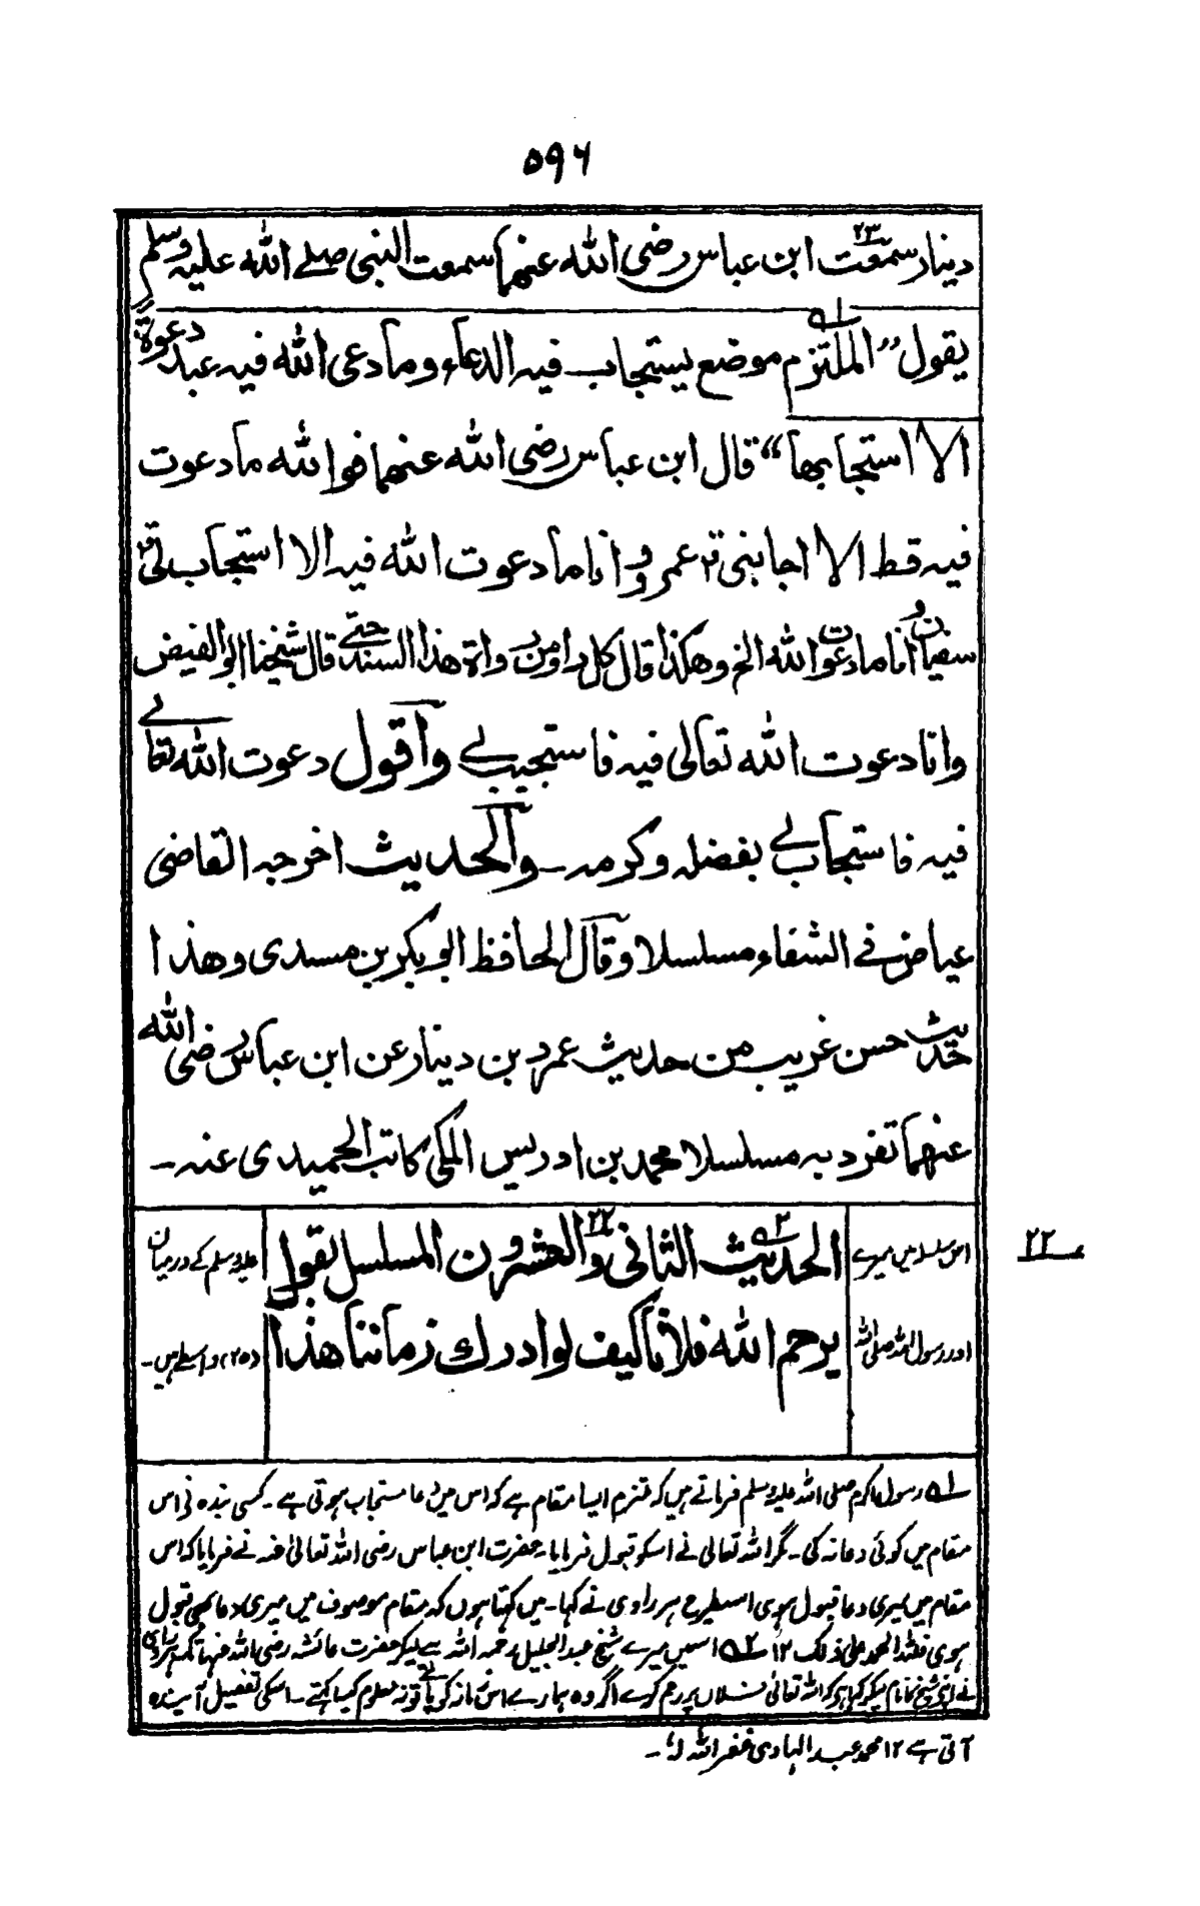 ۵۹۶
دینار سمعت۲۳ ابن عباس رضی الله عنهما سمعت النبی صلے الله علیہ وسلم
یقول ”الملتزم۱؎ موضع یستجاب فیہ الدعاء وما دعی الله فیہ عبد دعوۃ
الا استجابھا“ قال ابن عباس رضی الله عنهما فو الله ما دعوت
فیہ قط الا اجابنی قال عمرو وانا ما دعوت الله فیہ الا استجاب لی قال
سفیان وانا ما دعوت الله الخ وھکذا قال کل راو من رواۃ ھذا السند حتے قال شیخنا ابو الفیض
وانا دعوت الله تعالی فیہ فاستجیب لے واقول دعوت الله تعالے
فیہ فاستجاب لے بفضلہ وکرمہ۔ والحدیث اخرجہ القاضی
عیاض فے الشفاء مسلسلا وقال الحافظ ابو بکر بن مسدی وھذا
حدیث حسن غریب من حدیث عمرو بن دینار عن ابن عباس رضی الله
عنهما تفرد بہ مسلسلا محمد بن ادریس المکی کاتب الحمیدی عنہ۔
۲۲
الحدیث۲؎ الثانی والعشرون۲۲ المسلسل بقول
یرحم الله فلانا کیف لو ادرك زماننا ھذا
اس سلسلہ میں میرے
اور رسول اللہ صلی اللہ
علیہ وسلم کے درمیان
(۲۵) واسطے ہیں۔
۱؎ رسول اکرم صلی اللہ علیہ وسلم فرماتے ہیں کہ ملتزم ایسا مقام ہے کہ اس میں دعا مستجاب ہوتی ہے۔ کسی بندہ نے اس
مقام میں کوئی دعا نہ کی۔ مگر اللہ تعالی نے اسکو قبول فرمایا۔ حضرت ابن عباس رضی اللہ تعالیٰ عنہ نے فرمایا کہ اس
مقام میں میری دعا قبول ہوی اسطرح ہر راوی نے کہا۔ میں کہتا ہوں کہ مقام موصوف میں میری دعا بھی قبول
ہوی فللہ الحمد علی ذلک ۱۲ ۲؎ اسمیں میرے شیخ عبد الجلیل رحمہ اللہ سے لیکر حضرت عائشہ رضی اللہ عنہا تک ہر راوی
نے اپنے شیخ کا نام لیکر کہا ہے کہ اللہ تعالیٰ فلاں پر رحم کرے اگر وہ ہمارے اس زمانہ کو پاتے تو نہ معلوم کیا کہتے۔ اسکی تفصیل آیندہ
آتی ہے ۱۲ محمد عبد الہادی غفر اللہ لہ۔